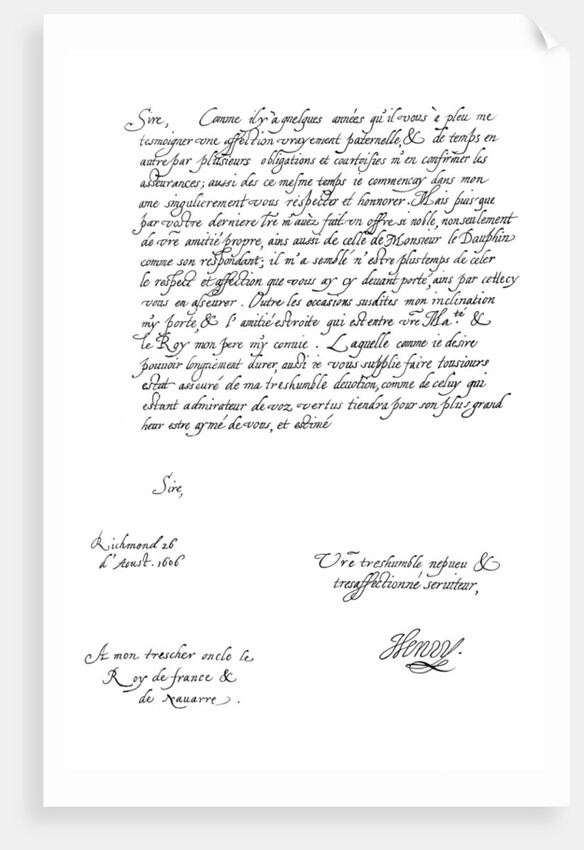 Sire, Comme il y à quelques années qu'il vous à pleu me
tesmoigner vne affection vrayement paternelle, & de temps en
autre par plusieurs obligations et courtoisies m'en confirmer les
asseurances; aussi des ce mesme temps ie commencay dans mon
ame singulierement vous respecter et honnorer. Mais puis que
par vostre derniere l̃re m'auèz fait vn offre si noble, non seulement
de vr̃e amitié propre, ains aussi de celle de Monsieur le Dauphin
comme son respondant; il m'a semblé n'estre plus temps de celer
le respect et affection que vous ay cy deuant porté, ains par cettecy
vous en asseurer. Outre les occasions susdites mon inclination
m'y porte, & l'amitié estroite qui est entre vr̃e Ma.té &
le Roy mon pere m'y conuie. Laquelle comme ie desire
pouuoir longuement durer, aussi ie vous supplie faire tousiours
estat asseuré de ma treshumble deuotion, comme de celuy qui
estant admirateur de voz vertus tiendra pour son plus grand
heur estre aymé de vous, et estimé
Sire,
Richmond 26
d'Aoust. 1606
Vr̃e treshumble nepueu &
tresaffectionné seruiteur,
Henry.
A mon trescher oncle le
Roy de france &
de Nauarre.